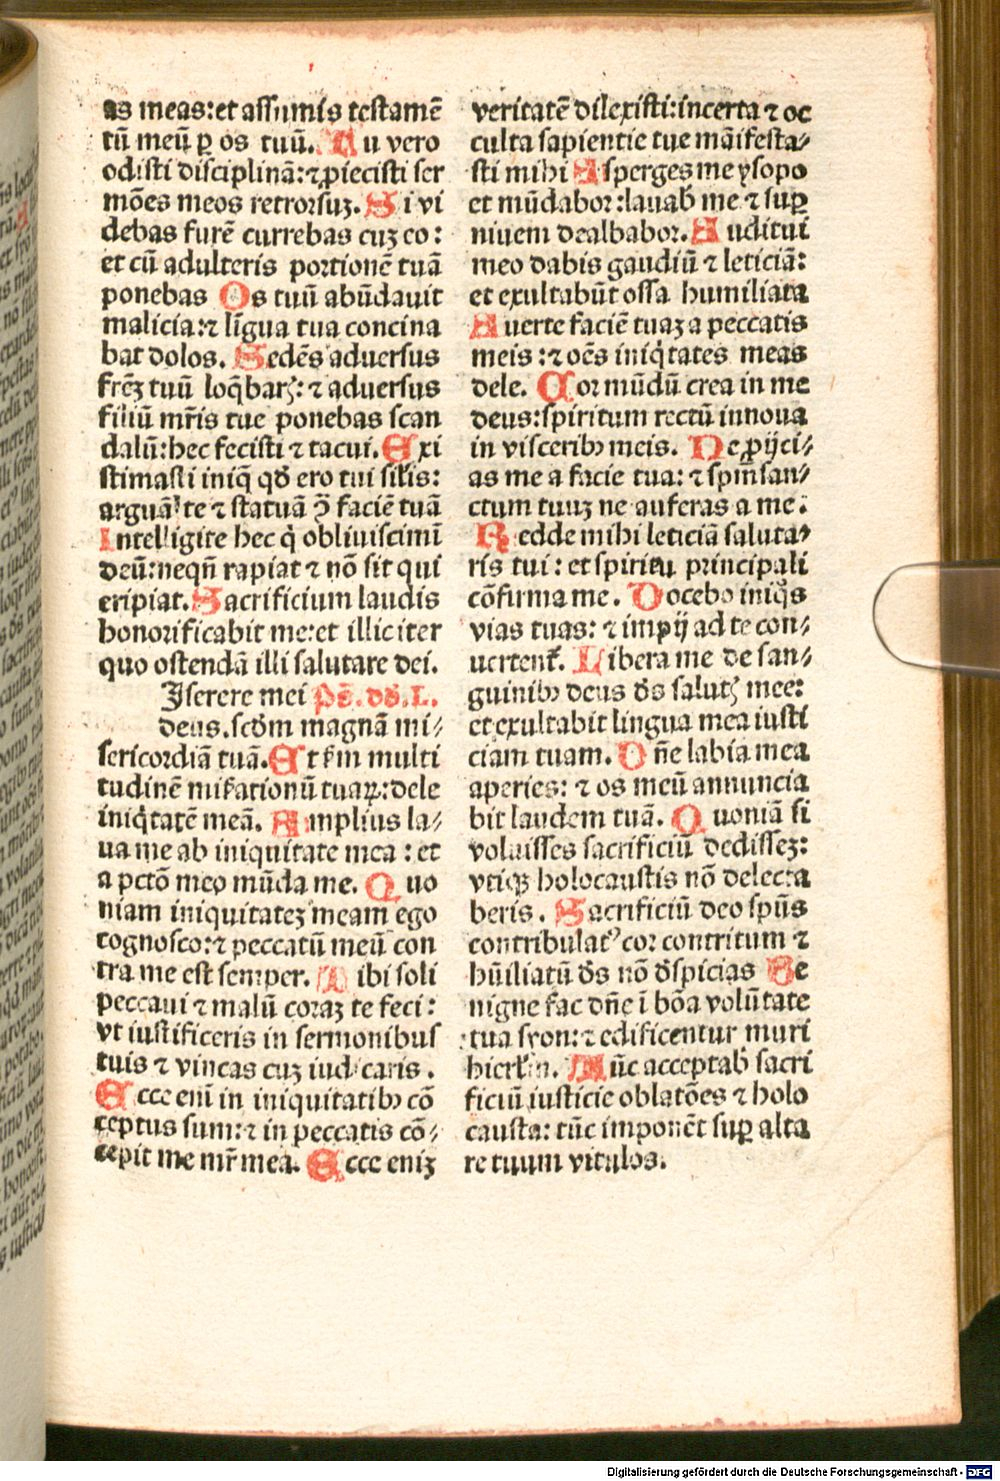 as meas:et assumis testamē
tū meū ꝑ os tuū. Tu vero
odisti disciplinā:⁊ ꝓiecisti ser
mōes meos retrorsuꝫ. Si vi
debas furē currebas cuꝫ eo:
et cū adulteris portionē tuā
ponebas Os tuū abūdauit
malicia:⁊ līgua tua concina
bat dolos. Sedēs aduersus
frēꝫ tuū loq̄barꝭ: ⁊ aduersus
filiū mr̄is tue ponebas scan
dalū:hec fecisti ⁊ tacui. Exi
stimasti iniq̄ qđ ero tui sil̄is:
arguā te ⁊ statuā ꝯ̄ faciē tuā
Intelligite hec q̇ obliuiscimī
deū:neqn̄ rapiat ⁊ nō sit qui
eripiat. Sacrificium laudis
honorificabit me:et illic iter
quo ostendā illi salutare dei.
Iserere mei Ps̄. dđ. L.
deus.scđm magnā mi⸗
sericordiā tuā. Et ẜm multi
tudinē miẜationū tuaꝝ:dele
iniq̇tatē meā. Amplius la⸗
ua me ab iniquitate mea : et
a pctō meo mūda me. Quo
niam iniquitateꝫ meam ego
cognosco:⁊ peccatū meū con
tra me est semper. Tibi soli
peccaui ⁊ malū coraꝫ te feci:
vt iustificeris in sermonibus
tuis ⁊ vincas cuꝫ iudicaris.
Ecce enī in iniquitatibꝰ cō
ceptus sum:⁊ in peccatis cō⸗
cepit me mr̄ mea. Ecce enīꝫ
veritatē dilexisti:incerta ⁊ oc
culta sapientie tue māifesta⸗
sti mihi Asperges me ysopo
et mūdabor:lauab̄ me ⁊ suꝑ
niuem dealbabor. Auditui
meo dabis gaudiū ⁊ leticiā:
et exultabūt ossa humiliata
Auerte faciē tuaꝫ a peccatis
meis :⁊ oēs iniq̇tates meas
dele. Cor mūdū crea in me
deus:spiritum rectū innoua
in visceribꝰ meis. Ne ꝓijci⸗
as me a facie tua: ⁊ spm̄ san⸗
ctum tuuꝫ ne auferas a me:
Redde mihi leticiā saluta⸗
ris tui : et spiritu principali
cōfirma me. Docebo iniq̇s
vias tuas: ⁊ impij ad te con⸗
uertent̄. Libera me de san⸗
guinibꝰ deus đs salutꝭ mee:
et exultabit lingua mea iusti
ciam tuam. Dn̄e labia mea
aperies: ⁊ os meū annuncia
bit laudem tuā. Quoniā si
voluisses sacrificiū dedisseꝫ:
vtiqꝫ holocaustis nō delecta
beris. Sacrificiū deo spūs
contribulatꝰ cor contritum ⁊
hūiliatū đs nō đspicias Be
nigne fac dn̄e ī bōa volūtate
tua syon:⁊ edificentur muri
hierl̄m. Tūc acceptab̄ sacri
ficiū iusticie oblatōes ⁊ holo
causta: tūc imponēt suꝑ alta
re tuum vitulos.
Digitalisierung gefördert durch die Deutsche Forschungsgemeinschaft - DFG